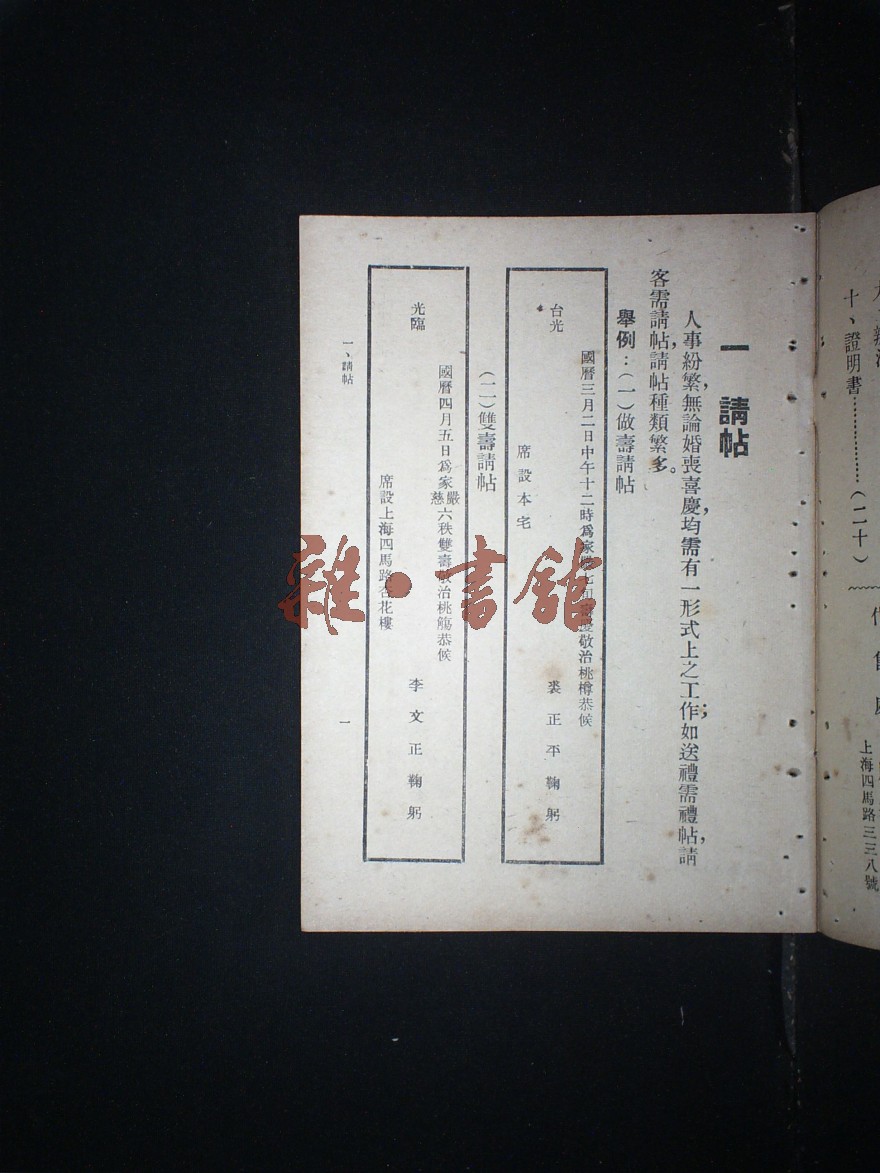 十、證明書……………(二十)
上海四馬路三三八號
一 請帖
人事紛繁,無論婚喪喜慶,均需有一形式上之工作;如送禮需禮帖,請
客需請帖,請帖種類繁多。
舉例:(一)做壽請帖
國曆三月二日中午十二時爲家 敬治桃樽恭候
台光
裘正平鞠躬
席設本宅
(二)雙壽請帖
國曆四月五日爲家嚴慈六秩雙壽敬治桃觴恭候
光臨
李文正鞠躬
席設上海四馬路杏花樓
一、請帖
一
雜·書館